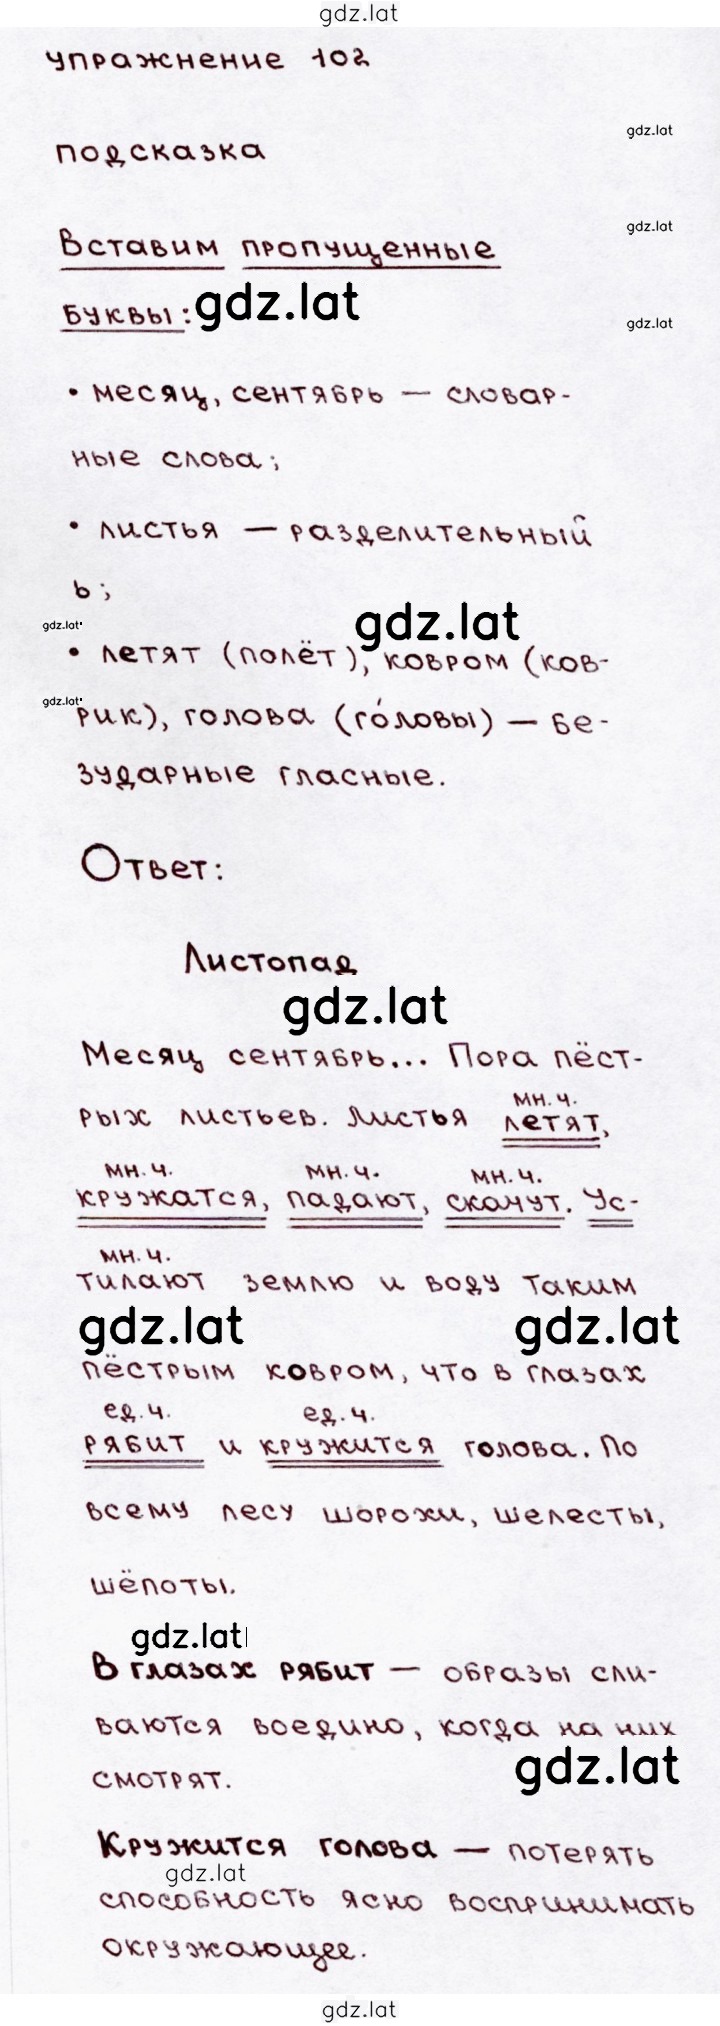 gdz.lat
упражнение 102
gdz.lat
подсказка
gdz.lat
Вставим пропущенные
буквы: gdz.lat
gdz.lat
• месяц, сентябрь — словар-
ные слова;
• листья — разделительный
ь;
gdz.lat
gdz.lat
• летят (полёт), ковром (ков-
gdz.lat
рик), голова (го́ловы) — бе-
зударные гласные.
Ответ:
Листопад
gdz.lat
Месяц сентябрь... Пора пёст-
мн. ч.
рых листьев. Листья летят,
мн. ч. мн. ч. мн. ч.
кружатся, падают, скачут. Ус-
мн. ч.
тилают землю и воду таким
gdz.lat gdz.lat
пёстрым ковром, что в глазах
ед. ч. ед. ч.
рябит и кружится голова. По
всему лесу шорохи, шелесты,
шёпоты.
gdz.lat
В глазах рябит — образы сли-
ваются воедино, когда на них
gdz.lat
смотрят.
Кружится голова — потерять
gdz.lat
способность ясно воспринимать
окружающее.
gdz.lat